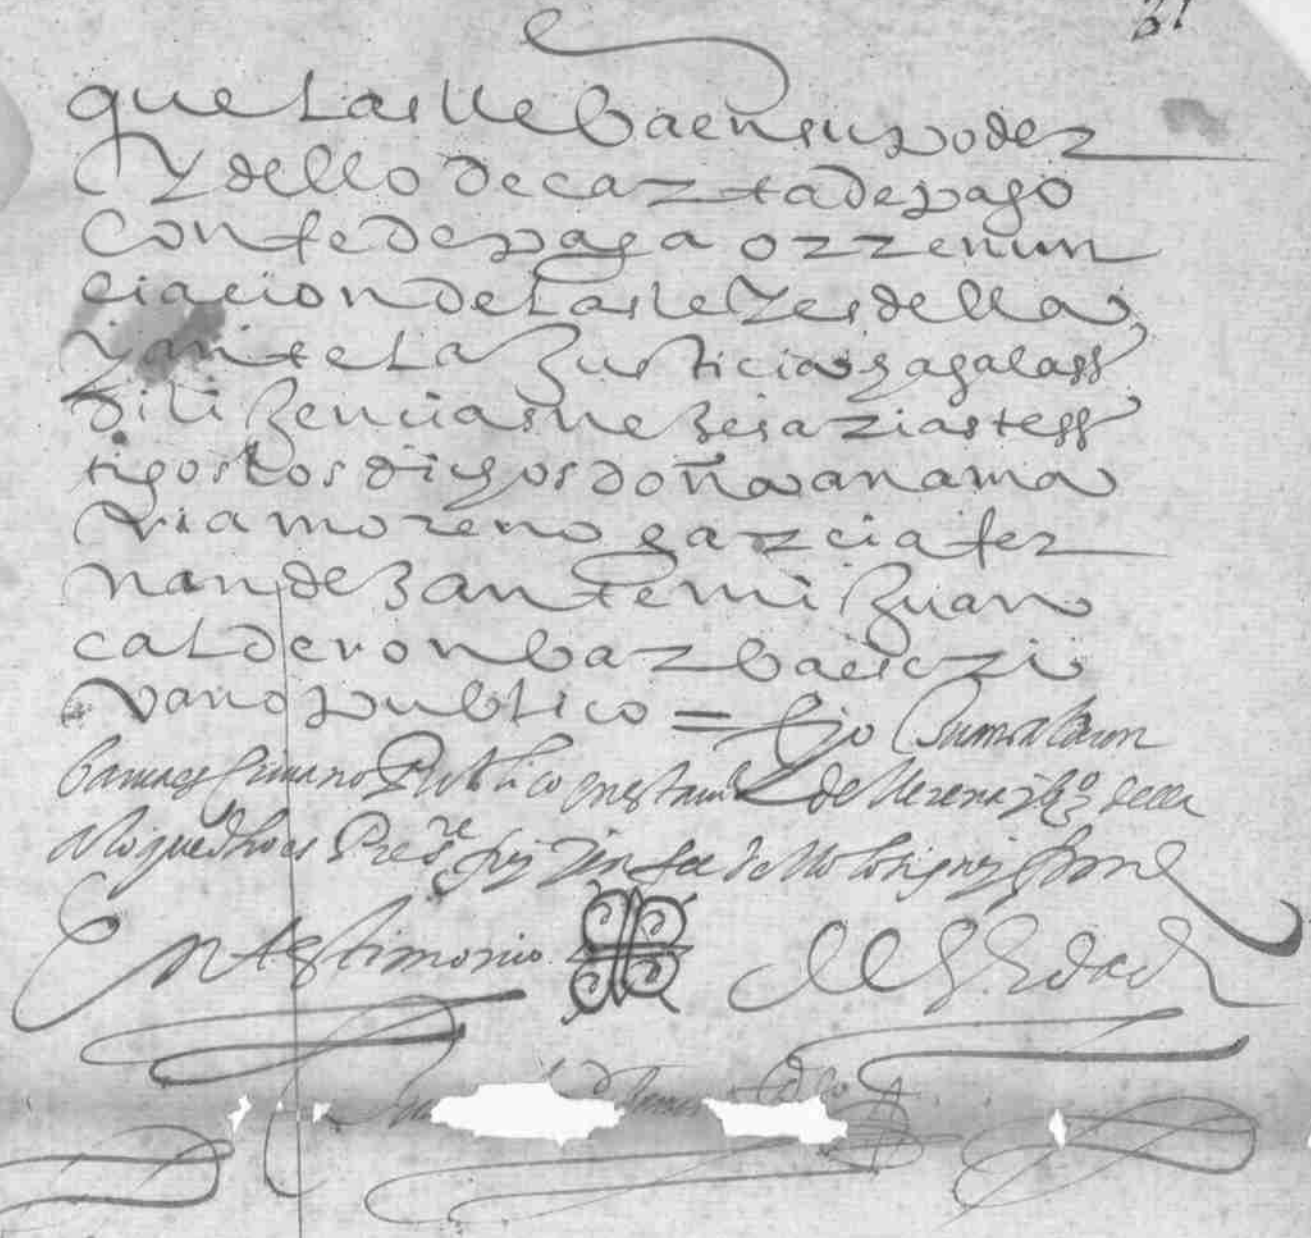 31
que las lleba en su poder
y dello de carta de pago
con fe de paga o rrenun
ciacion de las leyes della
y ante la Justicia haga lass
dilijencias nezesarias tess
tigos los dichos doña ana ma
ria moreno garcia fer
nandez ante mi Juan
calderon barba escri
vano publico = E yo Juan calderon
barua escriuano Publico en esta uilla de llerena della
lo que dho es Pres.te fui y en fee dello lo signe y firme
En testimonio de Verdad